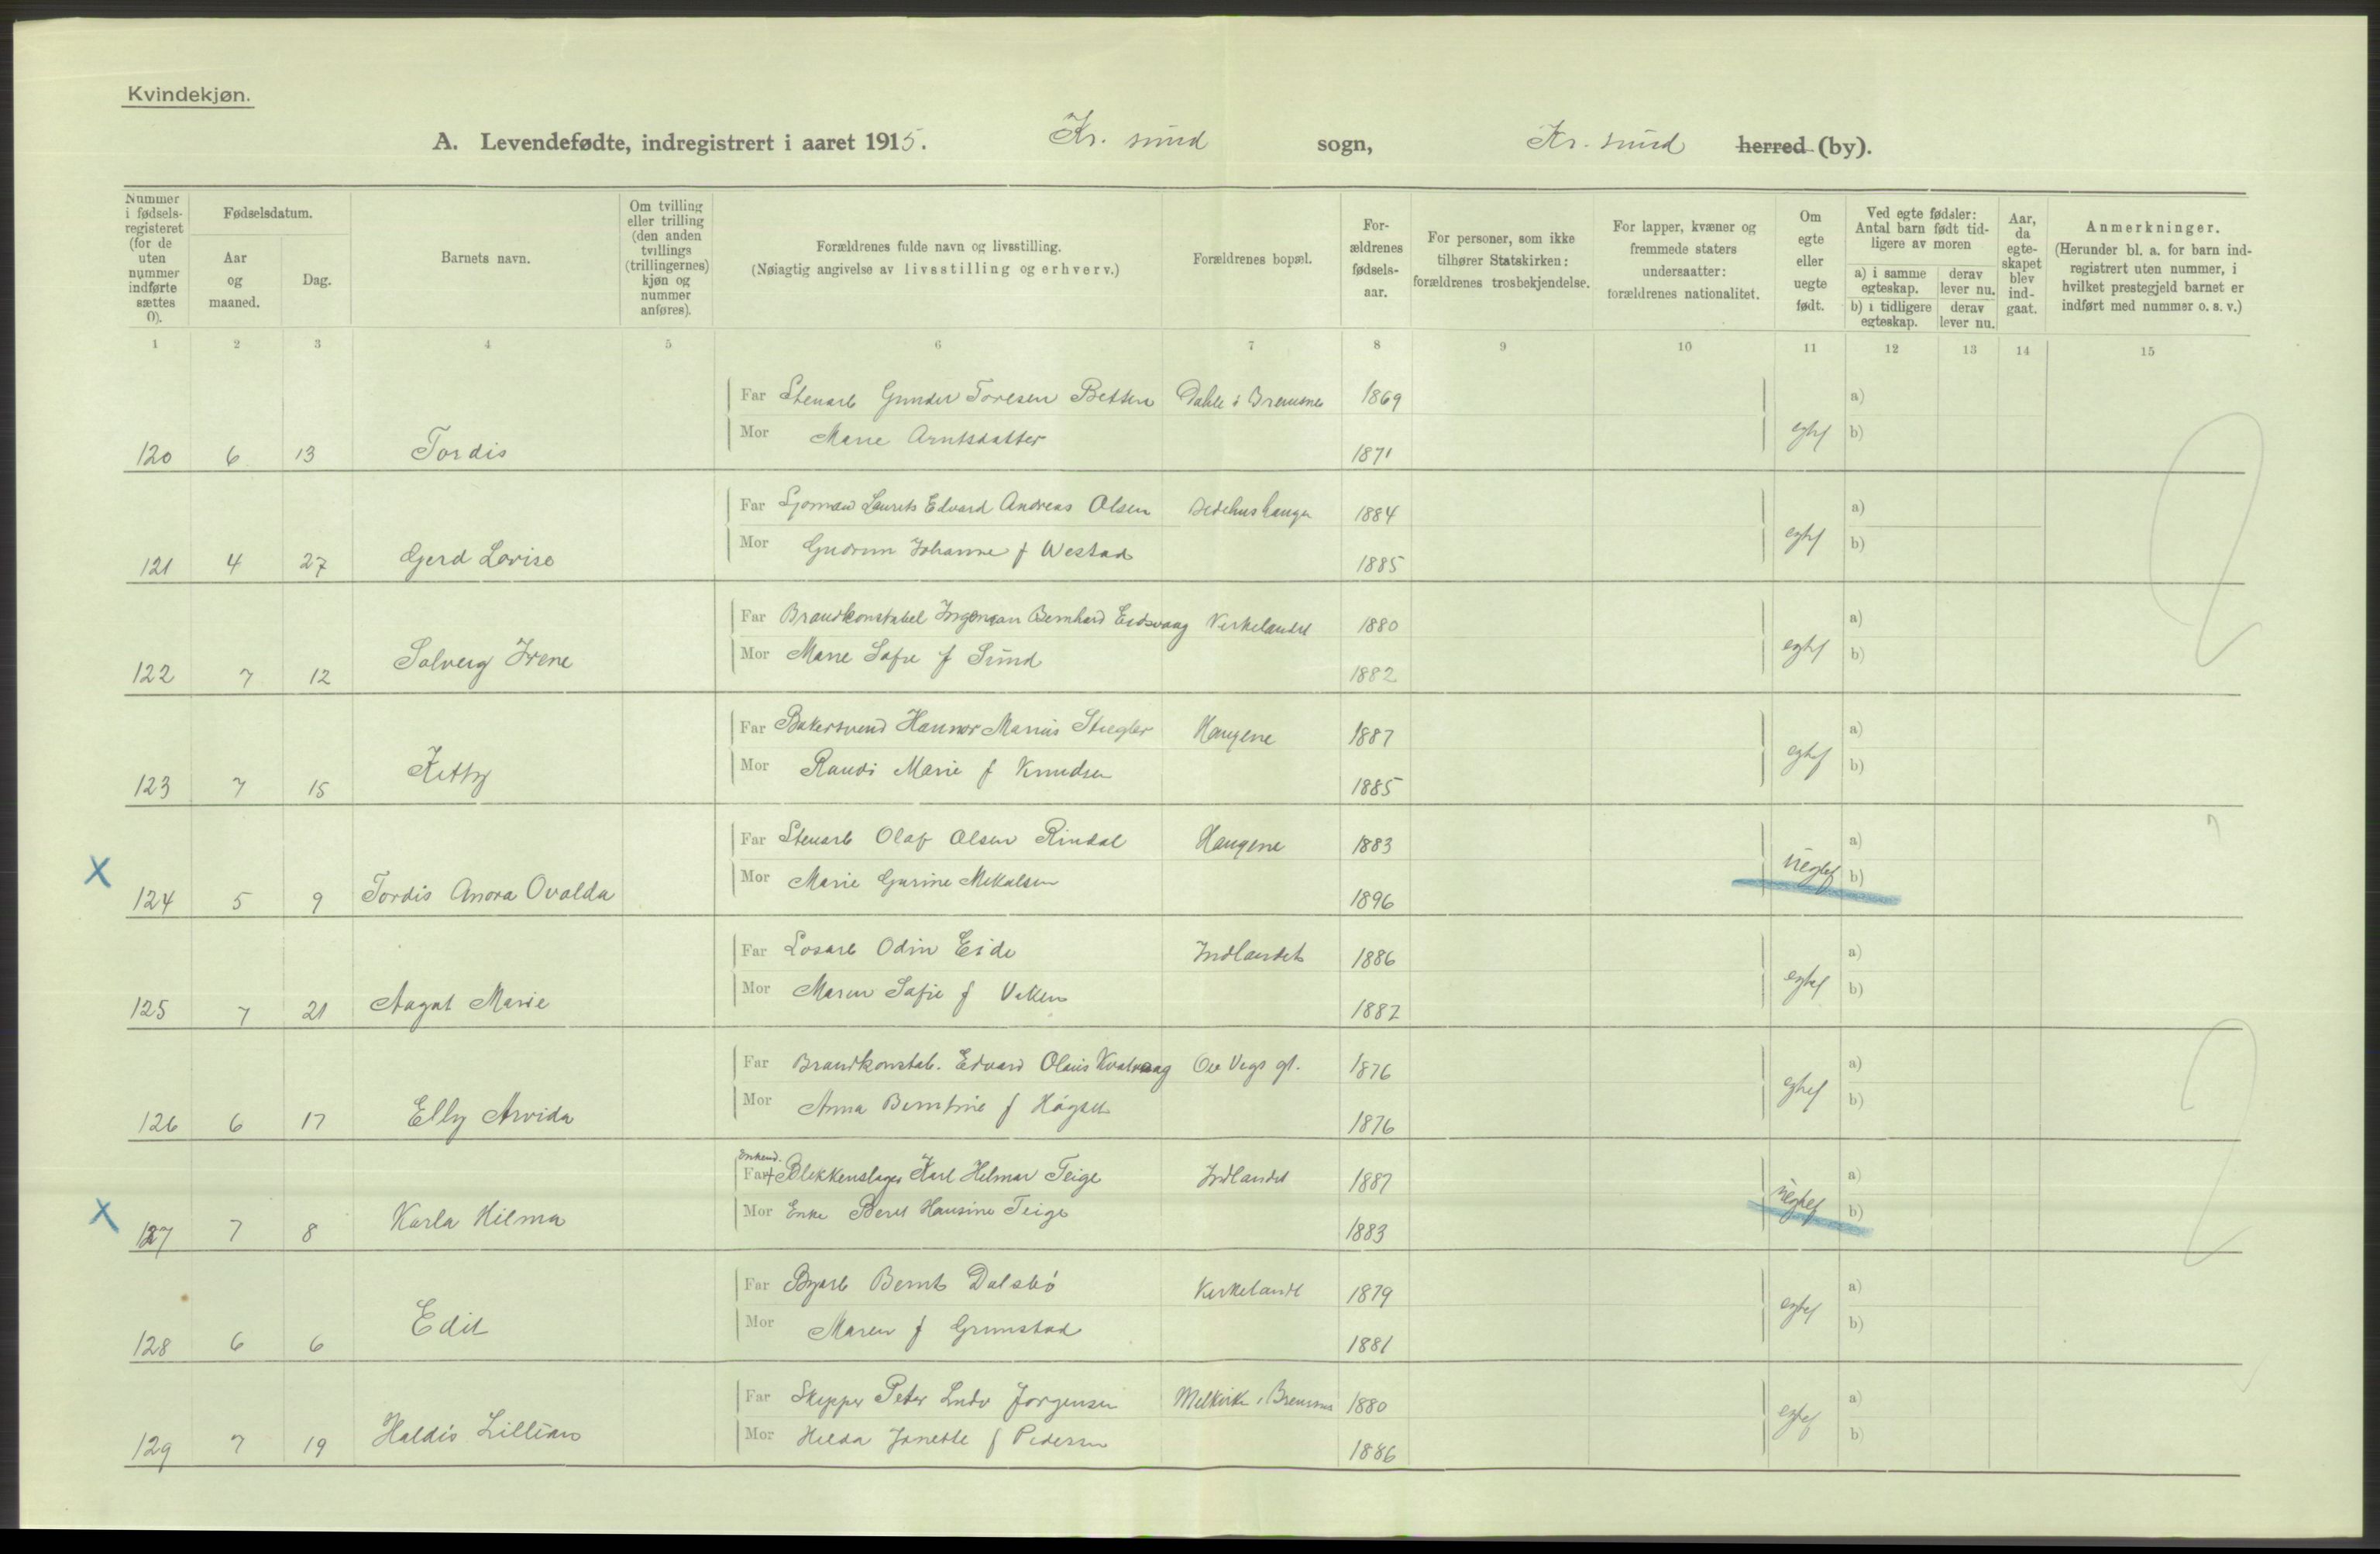 Kvindekjøn.
A. Levendefødte, indregistrert i aaret 1915. Kr. sund sogn, Kr. sund herred (by).
Nummer i fødsels-registeret (for de uten nummer indførte sættes 0). Fødselsdatum. Aar og maaned. Dag. Barnets navn. Om tvilling eller trilling (den anden tvillings (trillingernes) kjøn og nummer anføres). Forældrenes fulde navn og livsstilling. (Nøiagtig angivelse av livsstilling og erhverv.) Forældrenes bopæl. For-ældrenes fødsels-aar. For personer, som ikke tilhører Statskirken: forældrenes trosbekjendelse. For lapper, kvæner og fremmede staters undersaatter: forældrenes nationalitet. Om egte eller uegte født. Ved egte fødsler: Antal barn født tid-ligere av moren a) i samme egteskap. derav lever nu. b) i tidligere egteskap. derav lever nu. Aar, da egte-skapet blev ind-gaat. Anmerkninger. (Herunder bl. a. for barn ind-registrert uten nummer, i hvilket prestegjeld barnet er indført med nummer o. s. v.)
1 2 3 4 5 6 7 8 9 10 11 12 13 14 15
Far Stenarb Gunder Toresen Betten Dahle i Bremsnes 1869 a)
Mor Marie Arntsdatter egtef b)
120 6 13 Tordis 1871
Far Sjomand Laurits Edvard Andreas Olsen Bedehushaugen 1884 a)
Mor Gudrun Johanne f Westad egtef b)
121 4 27 Gjerd Lovise 1885
Far Brandkonstabel Ingemar Bernhard Eidsvaag Kirkelandet 1880 a)
Mor Marie Safie f Sund egtef b)
122 7 12 Solveig Irene 1882
Far Bakersvend Marius Stiegler Haugene 1887 a)
Mor Randi Marie f Knudsen egtef b)
123 7 15 Kitty 1885
Far Stenarb Olaf Olsen Rindal Haugene 1883 a)
Mor Marie Gurine Mikalsen uegtef b)
X 124 5 9 Tordis Anora Ovalda 1896
Far Losarb Odin Eide Indlandet 1886 a)
Mor Maren Safie f Viken egtef b)
125 7 21 Aagot Marie 1887
Far Brandkonstab. Edvard Olaus Kvalvaag Ole Vigs gt. 1876 a)
Mor Anna Berntine f Høgset egtef b)
126 6 17 Elly Arvida 1876
Far + Blikkenslager Karl Hilmar Teige Indlandet 1887 a)
Mor Enke Beret Hansine Teige uegtef b)
X 127 7 8 Karla Hilma 1883
Far Byarb Bernt Dalsbø Kirkelandt 1879 a)
Mor Maren f Grimstad egtef b)
128 6 6 Edit 1881
Far Skipper Peter Ludv Jørgensen Bremsnes 1880 a)
Mor Hilda Janette f Pedersen egtef b)
129 7 19 Haldis Lillian 1886